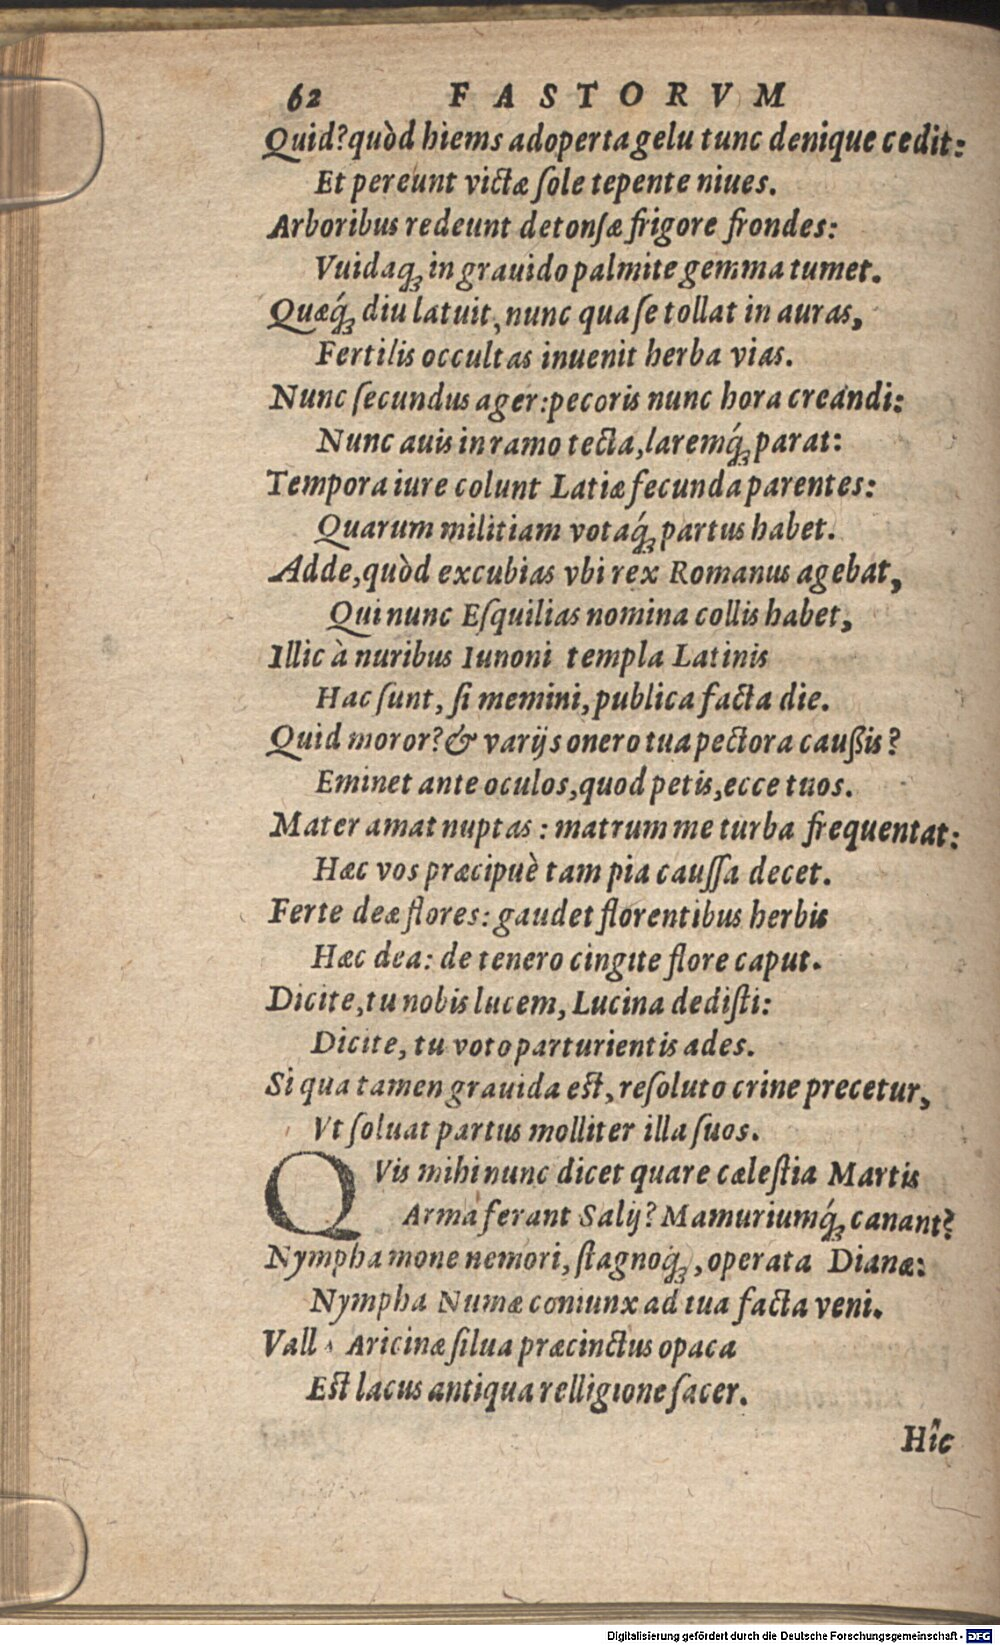 62 FASTORVM
Quid? quòd hiems adoperta gelu tunc denique cedit:
Et pereunt victæ ſole tepente niues.
Arboribus redeunt detonſæ frigore frondes:
Vuidaq́; in grauido palmite gemma tumet.
Quæq́; diu latuit, nunc qua ſe tollat in auras,
Fertilis occultas inuenit herba vias.
Nunc fecundus ager: pecoris nunc hora creandi:
Nunc auis in ramo tecta, laremq́; parat:
Tempora iure colunt Latiæ fecunda parentes:
Quarum militiam votaq́; partus habet.
Adde, quòd excubias vbi rex Romanus agebat,
Qui nunc Eſquilias nomina collis habet,
Illic à nuribus Iunoni templa Latinis
Hac ſunt, ſi memini, publica facta die.
Quid moror? & varijs onero tua pectora caußis?
Eminet ante oculos, quod petis, ecce tuos.
Mater amat nuptas: matrum me turba frequentat:
Hæc vos præcipuè tam pia cauſſa decet.
Ferte deæ flores: gaudet florentibus herbis
Hæc dea: de tenero cingite flore caput.
Dicite, tu nobis lucem, Lucina dediſti:
Dicite, tu voto parturientis ades.
Si qua tamen grauida eſt, reſoluto crine precetur,
Vt ſoluat partus molliter illa ſuos.
QVis mihi nunc dicet quare cæleſtia Martis
Arma ferant Salij? Mamuriumq́; canant?
Nympha mone nemori, ſtagnoq́;, operata Dianæ:
Nympha Numæ coniunx ad tua facta veni.
Vall Aricinæ ſilua præcinctus opaca
Eſt lacus antiqua relligione ſacer.
Hîc
Digitalisierung gefördert durch die Deutsche Forschungsgemeinschaft - DFG